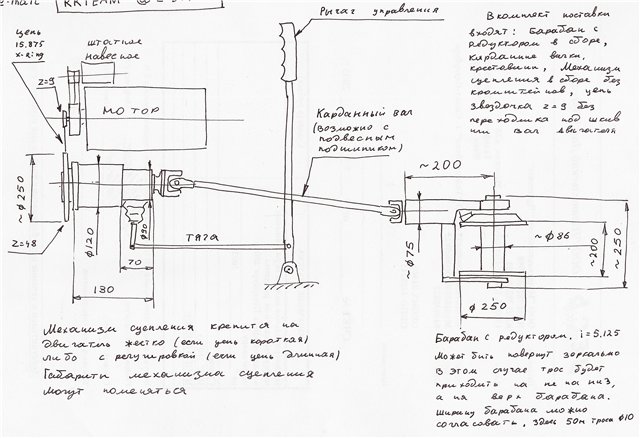 Рычаг управления
цепь
15.875
z=9
штатное
навесное
МОТОР
В комплект поставки
входят: Барабан с
редуктором в сборе,
карданные вилки,
крестовины, Механизм
сцепления в сборе без
кронштейнов, цепь
звездочка z=9 без
переходника под шкив
или вал двигателя
Карданный вал
(возможно с
подвесным
подшипником)
~200
~ф250
z=48
ф120
ф90
70
130
тяга
~ф75
~ф86
~200
~250
ф250
Механизм сцепления крепится на
двигатель жестко (если цепь короткая)
либо с регулировкой (если цепь длинная)
Габариты механизма сцепления
могут поменяться
Барабан с редуктором. i=5.125
Может быть повернут зеркально
В этом случае трос будет
приходить на не на низ,
а на верх барабана.
Ширину барабана можно
согласовать. Здесь 50м троса ф10